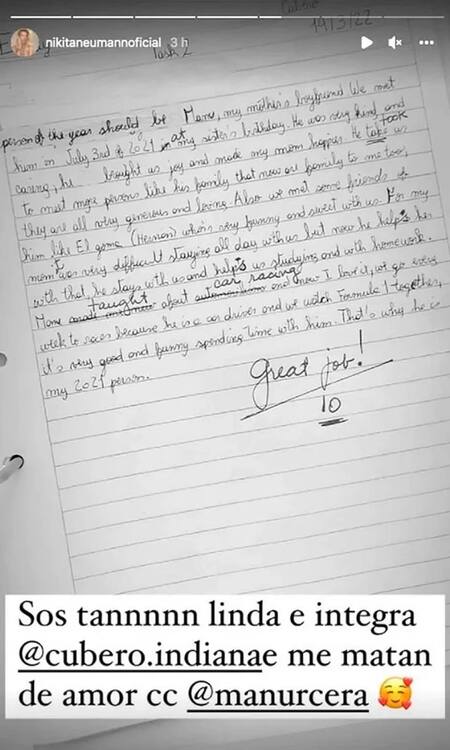 nikitaneumannoficial 3 h
Cubero
14/3/22
Task 2
person of the year should be Manu, my mother's boyfriend We met
him in July 3rd of 2021 at my sister's birthday. He was very kind and
caring, he brought us joy and made my mom happier. He take took us
to meet more persons like his family that now are family to me too,
they are all very generous and loving. Also we met some friends of
him like El goma (Hernan) who's very funny and sweet with us. For my
mom it was very difficult staying all day with us but now he helps her
with that, he stays with us and helps us studying and with homework.
Manu taught about car racing and now I love it, we go every
week to races because he is a car driver and we watch Formula 1 together,
it's very good and funny spending time with him. That's why he is
my 2021 person.
Great job!
10
Sos tannnnn linda e integra
@cubero.indianae me matan
de amor cc @manurcera 🥰